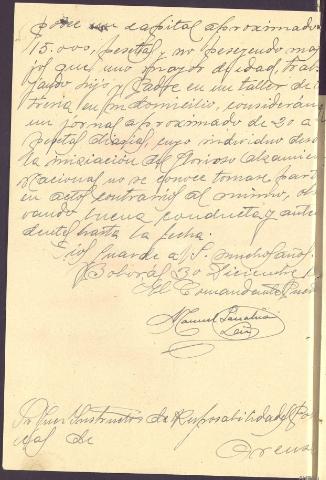 posee un capital aproximado
15.000, pesetas y no poseyendo mas
que uno mayor de edad, traba
jando hijo y Padre en un taller de
en su domicilio, consideran
un jornal aproximado de 20 a
pesetas diarias, cuyo individuo desde
la iniciación del Glorioso Alzamien
Nacional no se conoce tomase part
en actos contrarios al mismo, obser
vando buena conducta y antece
dentes hasta la fecha.
Dios Guarde a V.S. muchos años.
Boborás 30 Diciembre
El Comandente Puesto
Manuel
Sr Juez Instructor de Responsabilidades Pol
cas de
Orense